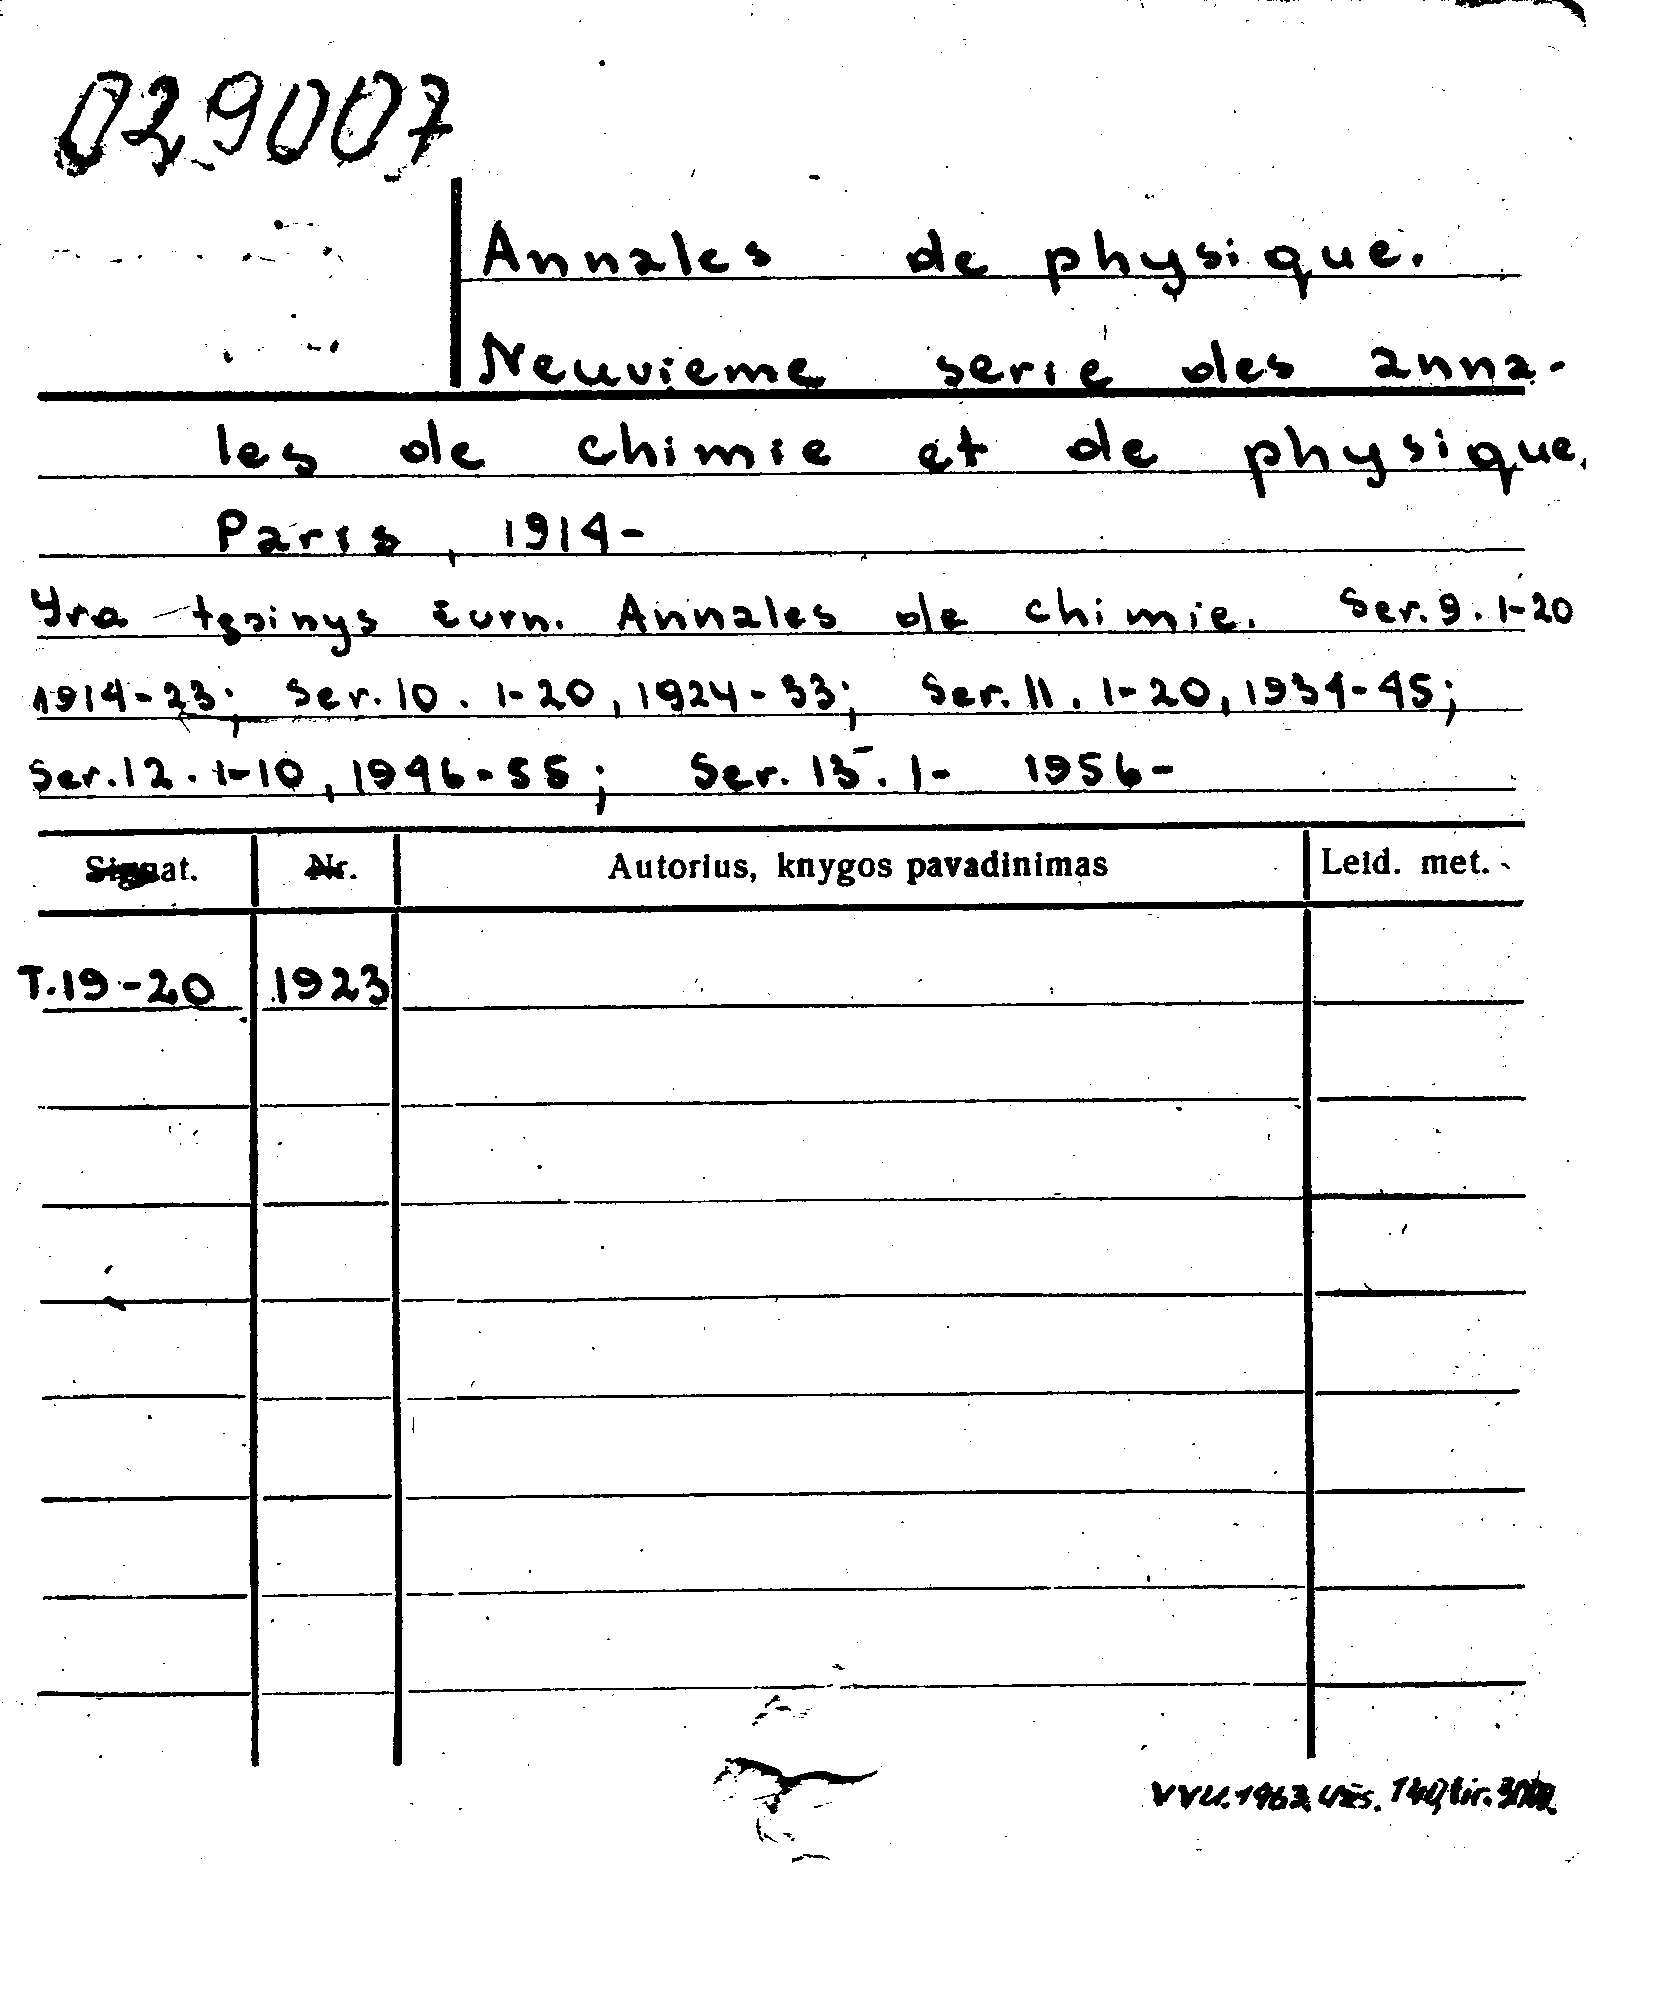 029007
Annales de physique.
Neuvieme serie des anna-
les de chimie et de physique.
Paris, 1914-
Yra tęsinys žurn. Annales de chimie. Ser. 9. 1-20
1914-23; Ser. 10. 1-20, 1924-33; Ser. 11. 1-20, 1934-45;
Ser. 12. 1-10, 1946-55; Ser. 13. 1- 1956-
Signat. Nr. Autorius, knygos pavadinimas Leid. met.
T. 19-20 1923
VVU. 1963. Užs. 140, tir.